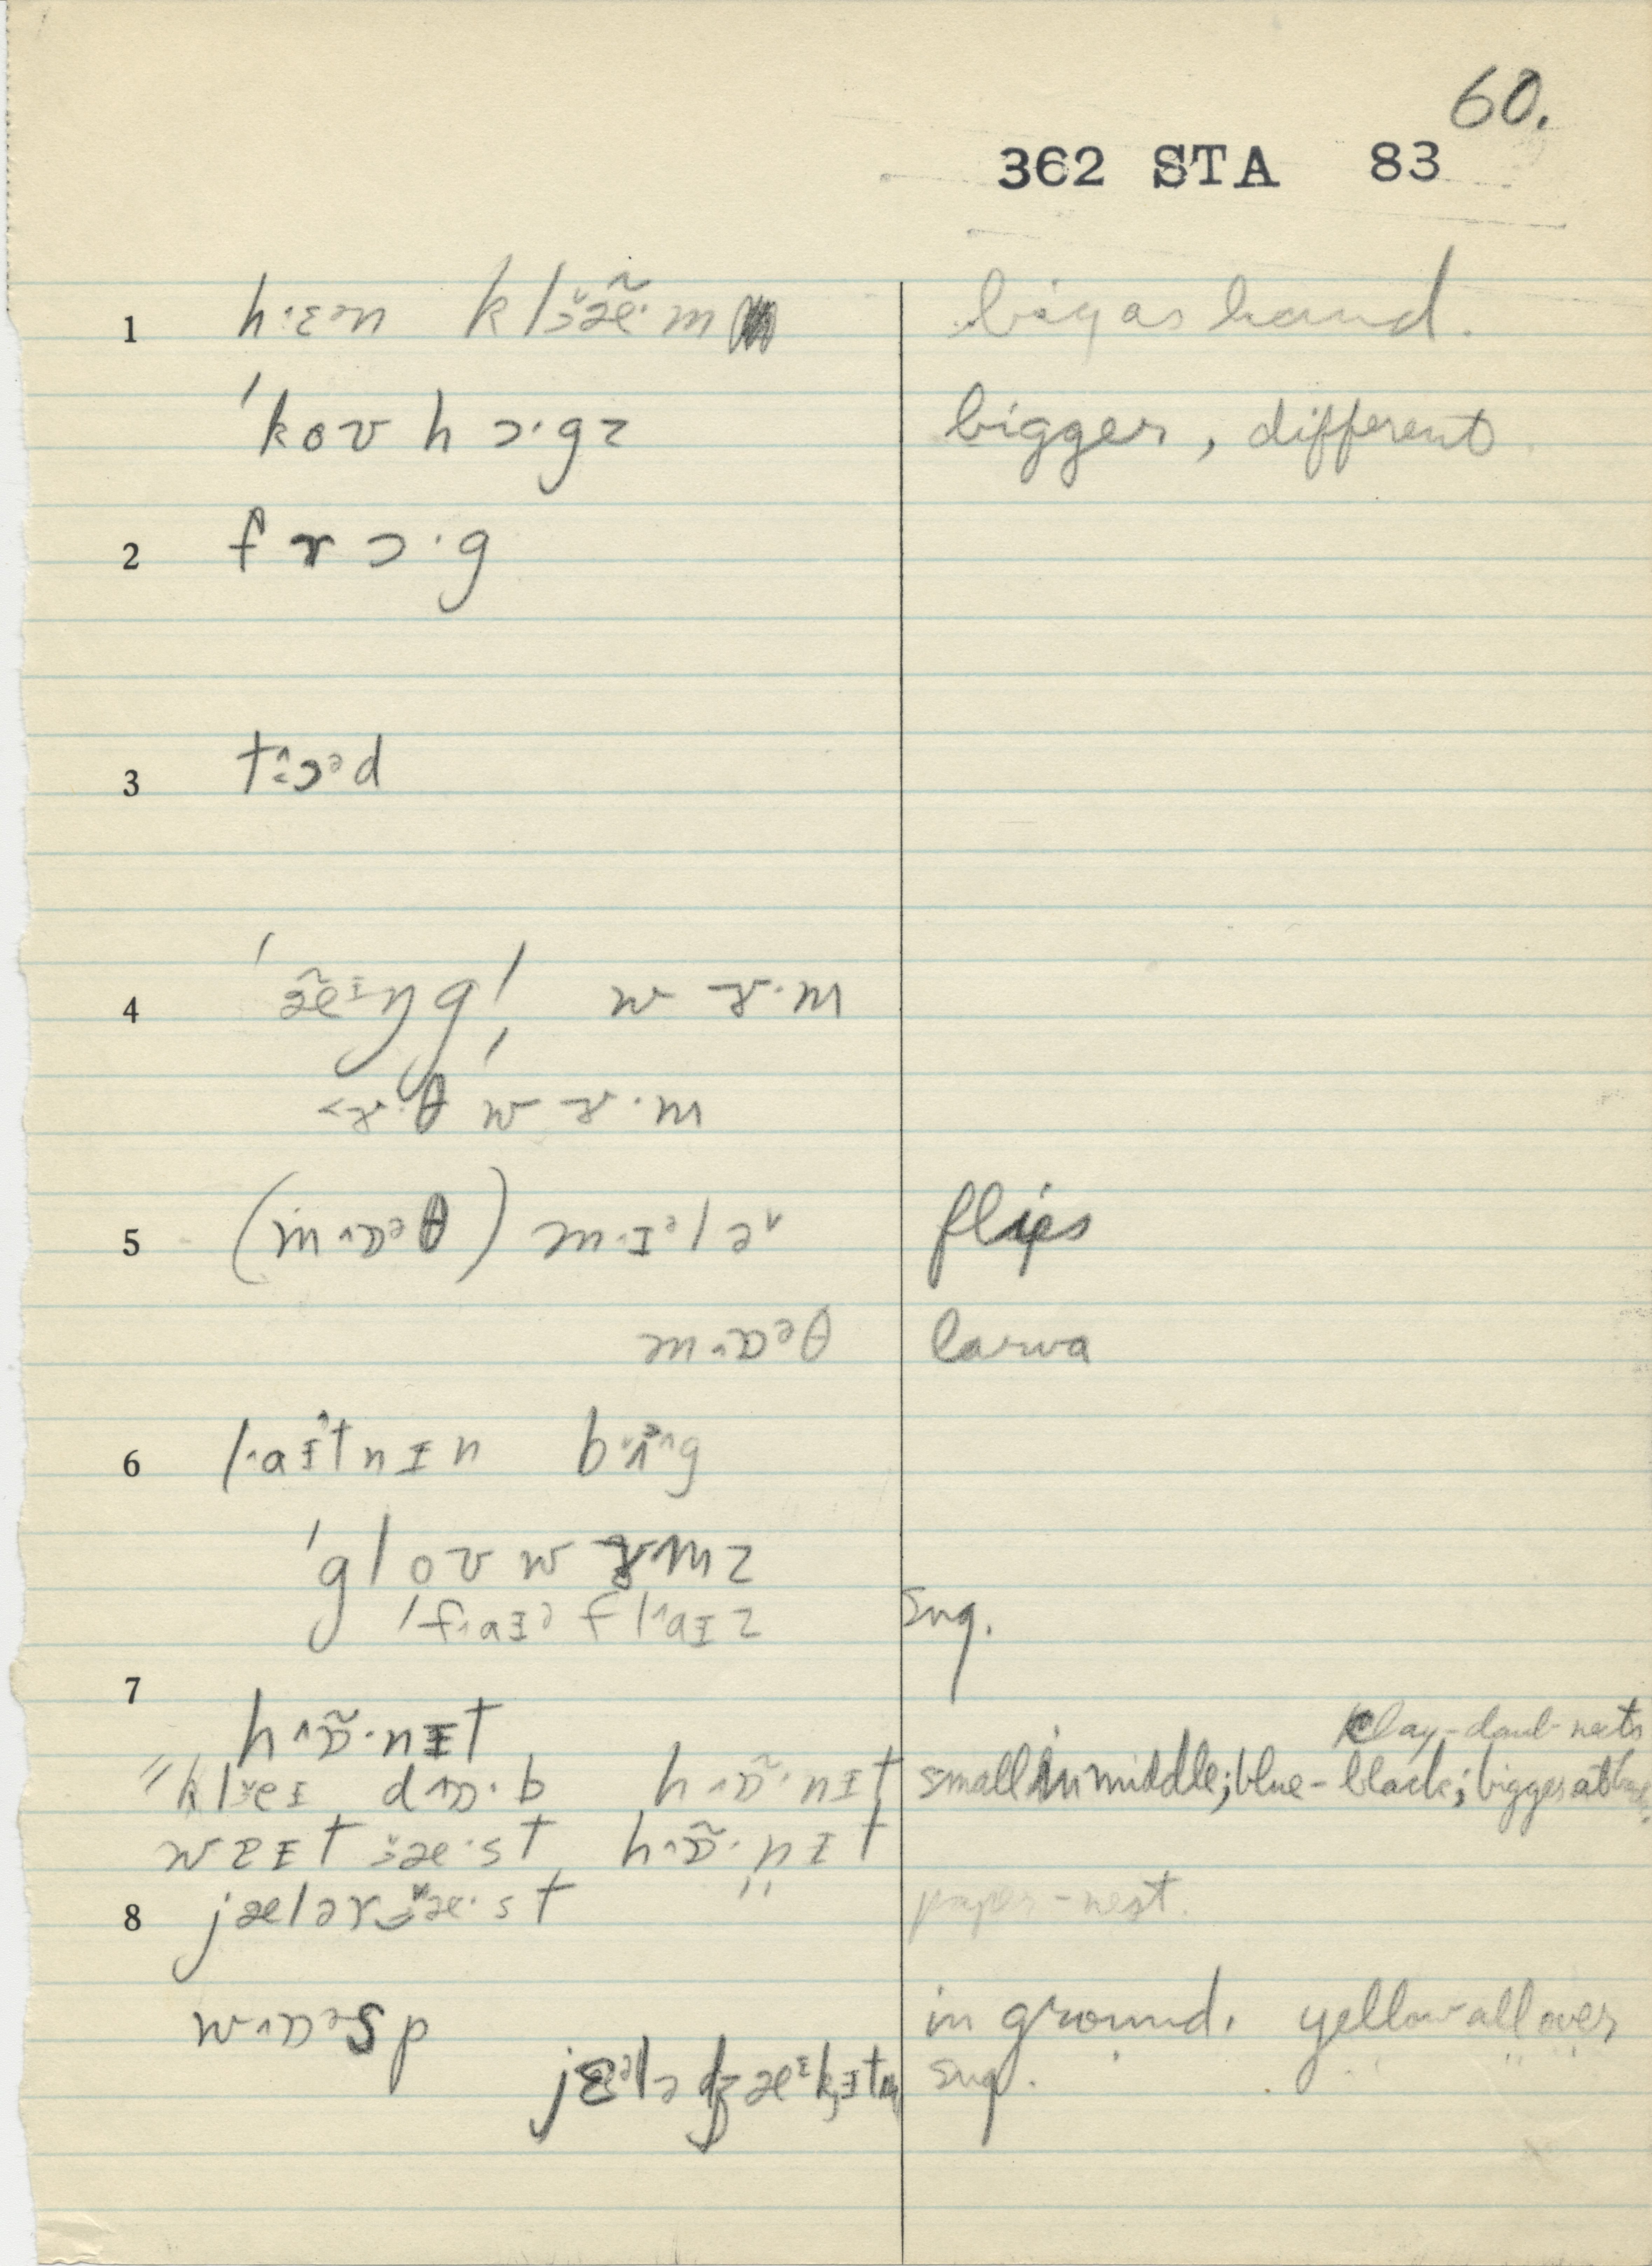 60.
362 STA 83
1 h·ɛᵊn kl³æ̃·m big as hand.
ˈkoʊhɔ·gz bigger, different
2 frɔ·g
3 t˄ɔᵊd
4 ˈæ̃ᶦŋgl̩ wɝ·m
ˈɝ·θwɝ·m
5 (m˄ɒᵊθ) m·ɪᵊlə˅ flies
m˄ɒᵊθ larva
6 l˄aɪtnɪn bʌ˄g
ˈgloʊwɝmz
ˈf˄aɪᵊfl˄aɪz sug.
7 h˄ɒ̃·nɪt clay-daub nests
"kl˅eɪ d˄ɒ·b h˄ɒ̃·nɪt small in middle; blue-black; bigger at
weɪst h˄ɒ̃·nɪt
8 jælər ʒæ·st paper-nest.
w˄ɒᵊsp in ground. yellow all over
jɛᵊlə dʒæᶦkɪt sug.